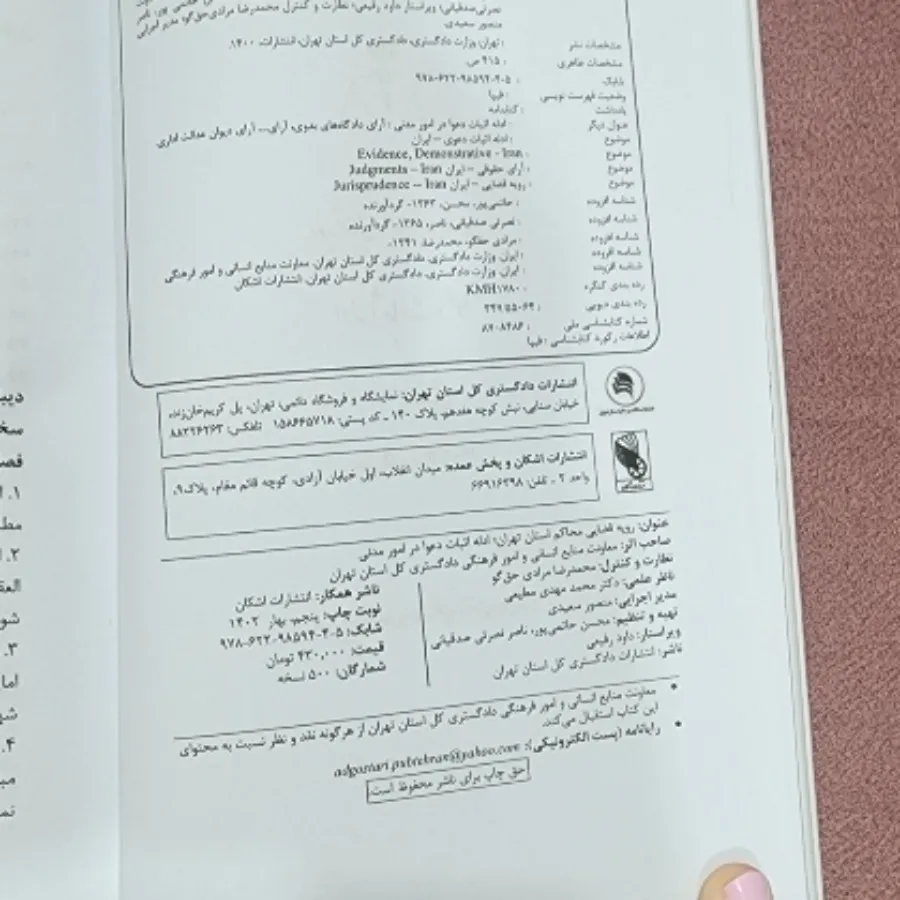 نصرتی‌صدقیانی؛ ویراستار داود رفیعی؛ نظارت و کنترل محمدرضا مرادی‌حق‌گو؛ مدیر اجرایی
منصور سعیدی.
مشخصات نشر : تهران: وزارت دادگستری، دادگستری کل استان تهران، انتشارات، ۱۴۰۰.
مشخصات ظاهری : ۴۱۵ ص.
شابک : ۹۷۸-۶۲۲-۹۸۵۹۴-۴-۵
وضعیت فهرست نویسی : فیپا
یادداشت : کتابنامه
عنوان دیگر : ادله اثبات دعوا در امور مدنی : آرای دادگاه‌های بدوی، آرای... آرای دیوان عدالت اداری
موضوع : ادله اثبات دعوی -- ایران
موضوع : Evidence, Demonstrative - Iran
موضوع : آرای حقوقی -- ایران Judgments -- Iran
موضوع : رویه قضایی -- ایران Jurisprudence -- Iran
شناسه افزوده : حاتمی‌پور، محسن، ۱۳۶۳- گردآورنده
شناسه افزوده : نصرتی صدقیانی، ناصر، ۱۳۶۵- گردآورنده
شناسه افزوده : مرادی حقگو، محمدرضا، ۱۳۴۱-
شناسه افزوده : ایران. وزارت دادگستری. دادگستری کل استان تهران. معاونت منابع انسانی و امور فرهنگی
شناسه افزوده : ایران. وزارت دادگستری. دادگستری کل استان تهران. انتشارات اشکان
رده بندی کنگره : KMH۱۷۸۰
رده بندی دیویی : ۳۴۷/۵۵۰۶۴
شماره کتابشناسی ملی : ۸۷۰۸۴۸۶
اطلاعات رکورد کتابشناسی : فیپا
انتشارات دادگستری کل استان تهران: نمایشگاه و فروشگاه دائمی، تهران، پل کریم‌خان‌زند،
خیابان سنایی، نبش کوچه هفدهم، پلاک ۱۴۰ ـ کد پستی: ۱۵۸۶۶۵۷۱۸ تلفکس: ۸۸۳۲۶۲۶۳
انتشارات اشکان و پخش عمده: میدان انقلاب، اول خیابان آزادی، کوچه قائم مقام، پلاک۹،
واحد ۲ ـ تلفن: ۶۶۹۱۶۲۹۸
عنوان: رویه قضایی محاکم استان تهران؛ ادله اثبات دعوا در امور مدنی
صاحب اثر: معاونت منابع انسانی و امور فرهنگی دادگستری کل استان تهران
نظارت و کنترل: محمدرضا مرادی حق‌گو
ناظر علمی: دکتر محمد مهدی مطیعی
مدیر اجرایی: منصور سعیدی
تهیه و تنظیم: محسن حاتمی‌پور، ناصر نصرتی صدقیانی
ویراستار: داود رفیعی
ناشر: انتشارات دادگستری کل استان تهران
ناشر همکار: انتشارات اشکان
نوبت چاپ: پنجم، بهار ۱۴۰۲
شابک: ۵-۴-۹۸۵۹۴-۶۲۲-۹۷۸
قیمت: ۴۳۰,۰۰۰ تومان
شمارگان: ۵۰۰ نسخه
• معاونت منابع انسانی و امور فرهنگی دادگستری کل استان تهران از هرگونه نقد و نظر نسبت به محتوای
این کتاب استقبال می‌کند.
• رایانامه (پست الکترونیکی):
حق چاپ برای ناشر محفوظ است.
۱.
۲.
۳.
اما
۴.